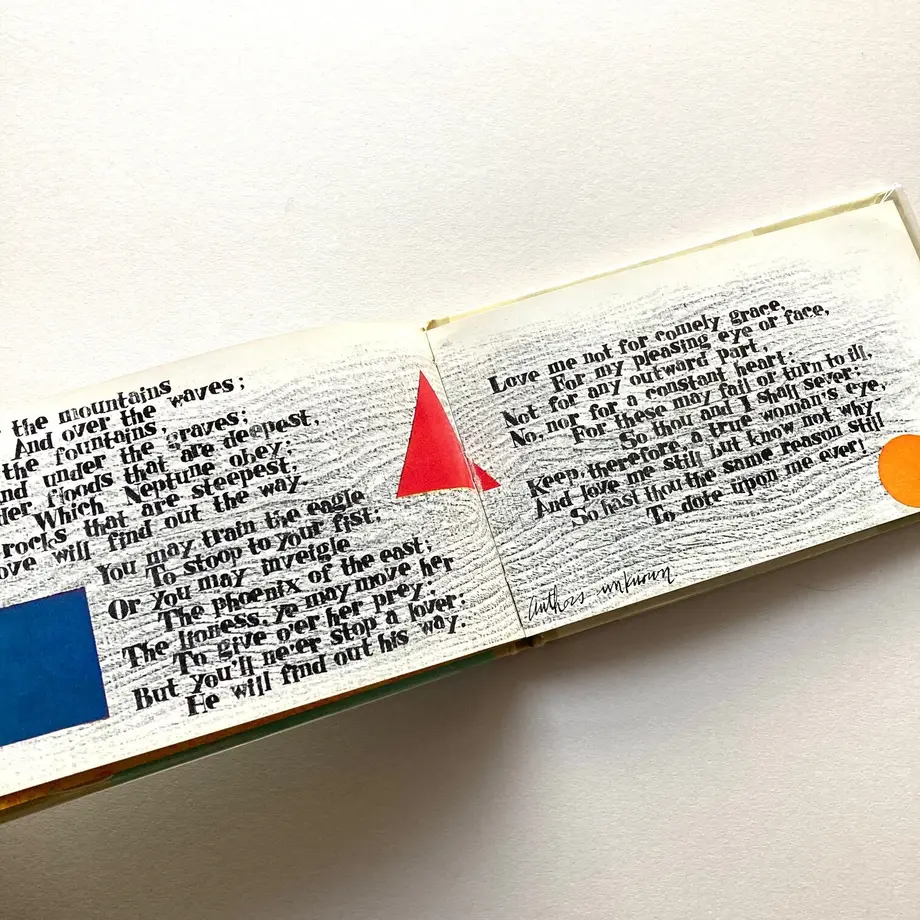 the mountains
And over the waves;
the fountains,
nd under the graves;
der floods that are deepest,
Which Neptune obey;
rocks that are steepest,
ove will find out the way.
You may train the eagle
To stoop to your fist;
Or you may inveigle
The phoenix of the east;
The lioness, ye may move her
To give o'er her prey;
But you'll ne'er stop a lover:
He will find out his way.
Love me not for comely grace,
For my pleasing eye or face,
Not for any outward part,
No, nor for a constant heart:
For these may fail or turn to ill,
So thou and I shall sever:
Keep, therefore, a true woman's eye,
And love me still but know not why,
So hast thou the same reason still
To dote upon me ever!
Authors unknown